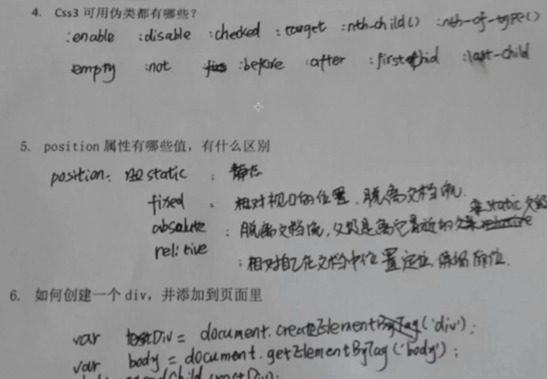 4. Css3 可用伪类都有哪些?
:enable :disable :checked :target :nth-child() :nth-of-type()
empty :not :before :after :first-child :last-child
5. position 属性有哪些值，有什么区别
position: static : 静态
fixed : 相对视口的位置, 脱离文档流.
absolute : 脱离文档流, 父级是离它最近的 非static父级
relitive : 相对自己在文档中位置定位 保留原位.
6. 如何创建一个 div，并添加到页面里
var Div = document.createElement('div');
var body = document.getElementByTag('body');